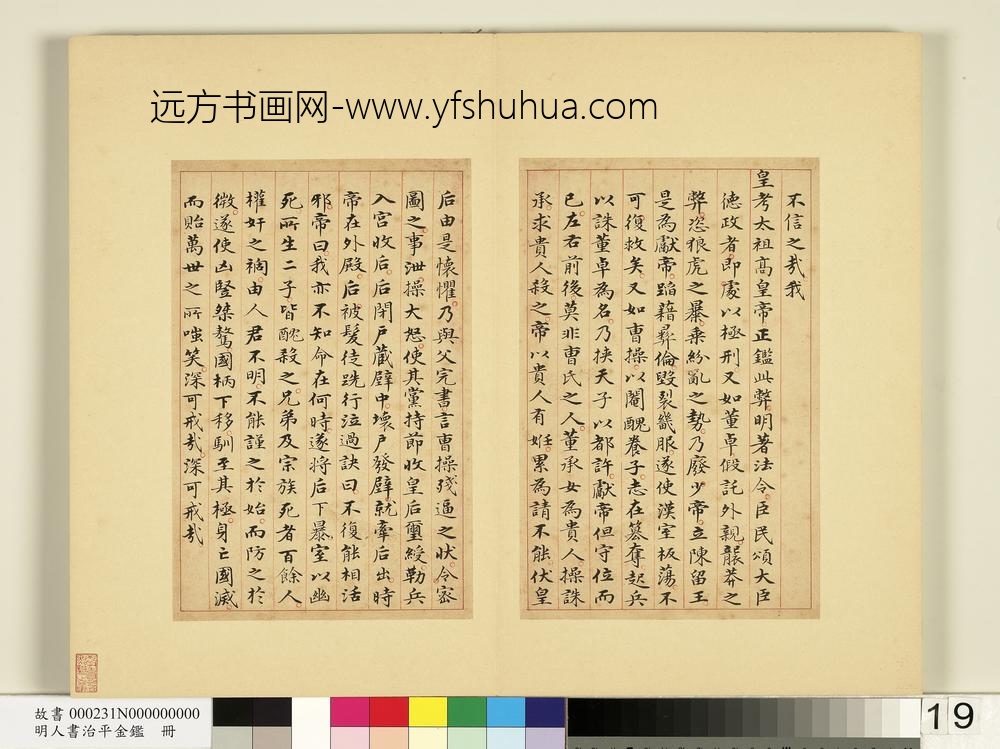 远方书画网-www.yfshuhua.com
不信之哉我
皇考太祖高皇帝正鑑此弊明著法令臣民頌大臣
德政者即處以極刑又如董卓假託外親䶮莽之
弊恣狼虎之暴乗紛亂之勢乃廢少帝立陳留王
是為獻帝蹈藉彛倫毀裂畿服遂使漢室板蕩不
可復救矣又如曹操以閹醜養子志在簒奪起兵
以誅董卓為名乃挾天子以都許獻帝但守位而
已左右前後莫非曹氏之人董承女為貴人操誅
承求貴人殺之帝以貴人有姙累為請不能伏皇
后由是懷懼乃與父完書言曹操殘逼之狀令密
圖之事泄操大怒使其黨持節收皇后璽綬勒兵
入宮收后后閉戶藏壁中壞戶發壁就牽后出時
帝在外殿后被髮徒跣行泣過訣曰不復能相活
邪帝曰我亦不知命在何時遂将后下暴室以幽
死所生二子皆酖殺之兄弟及宗族死者百餘人
權奸之禍由人君不明不能謹之於始而防之於
微遂使凶豎桀驁國柄下移馴至其極身亡國滅
而貽萬世之所嗤笑深可戒哉深可戒哉
故書 000231N000000000
明人書治平金鑑 冊
19